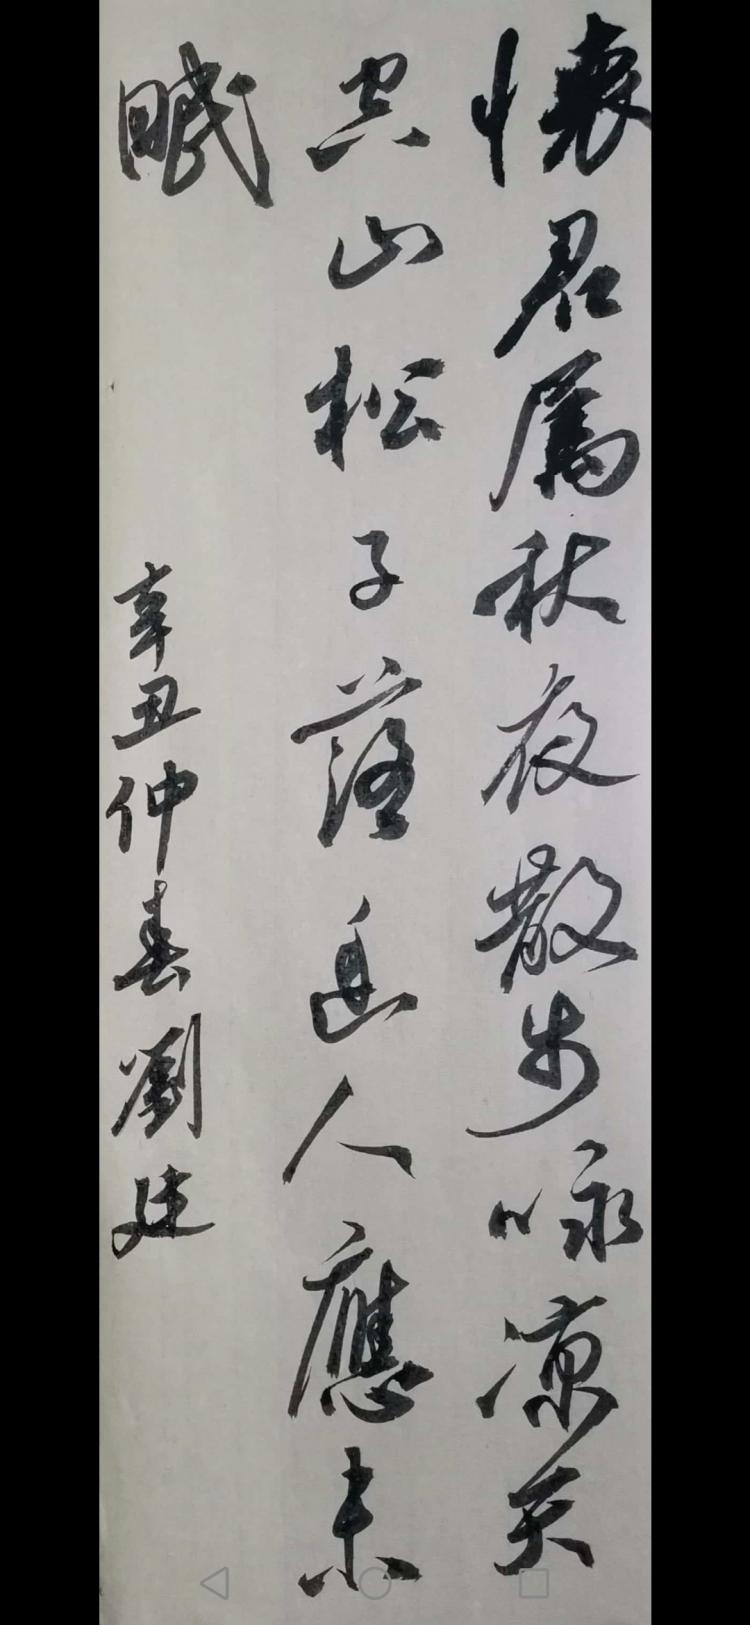 懷君屬秋夜散步咏凉天
空山松子落幽人應未
眠
辛丑仲春劉建